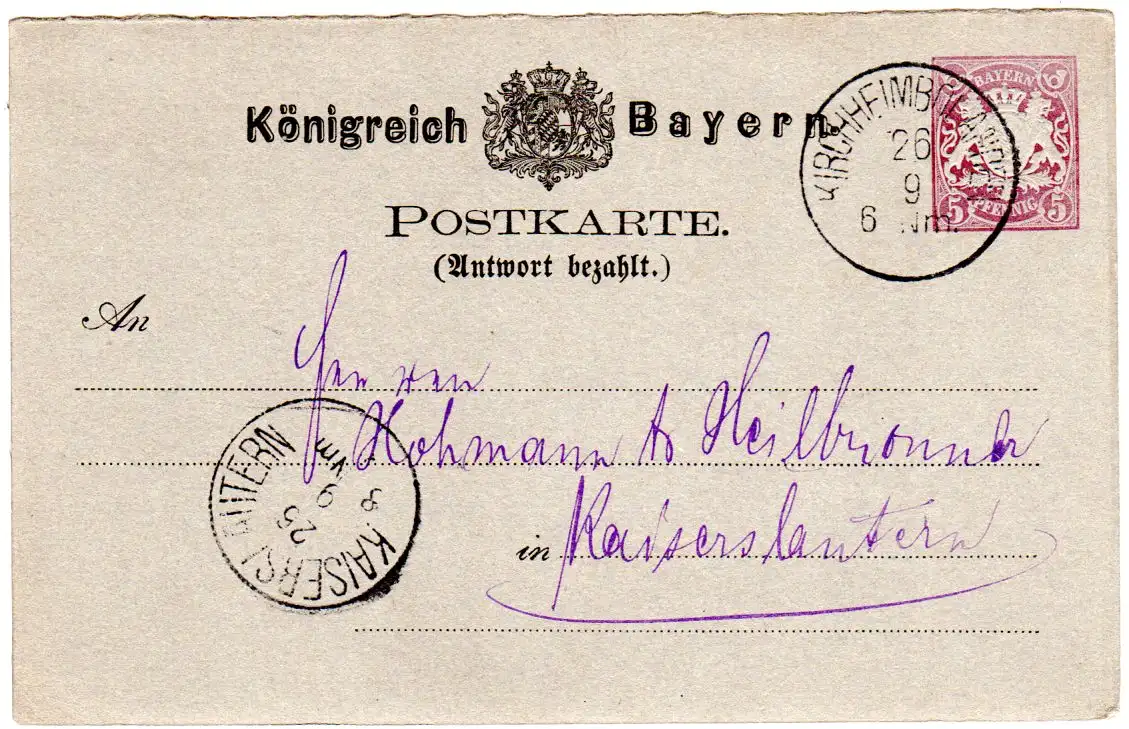 Königreich Bayern.
POSTKARTE.
(Antwort bezahlt.)
BAYERN
5 PFENNIG 5
KIRCHHEIMBOLANDEN
26
9
6 Nm.
An
Herren
Hohmann & Heilbronner
in Kaiserslautern
KAISERSLAUTERN
25
9
8 Vm